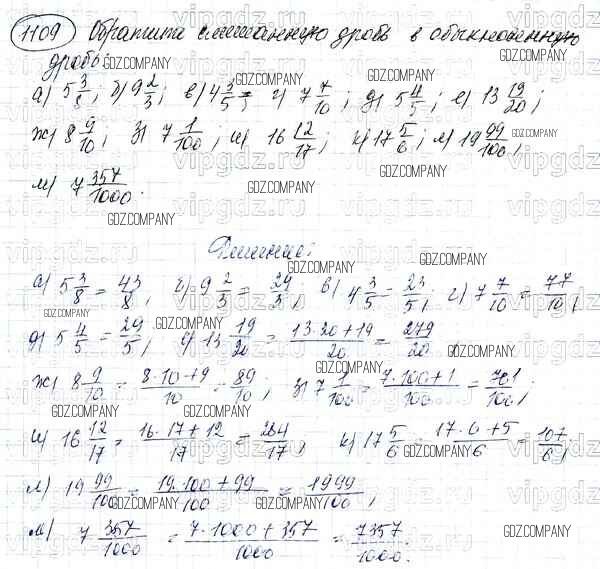 1109 Обратите смешанную дробь в обыкновенную
дробь:
а) 5 3/8; б) 9 2/3; в) 4 3/5; г) 7 7/10; д) 5 4/5; е) 13 19/20;
ж) 8 9/10; з) 7 1/100; и) 16 12/17; к) 17 5/6; л) 19 99/100;
м) 7 357/1000.
Решение:
а) 5 3/8 = 43/8; б) 9 2/3 = 29/3; в) 4 3/5 = 23/5; г) 7 7/10 = 77/10;
д) 5 4/5 = 29/5; е) 13 19/20 = 13·20+19/20 = 279/20;
ж) 8 9/10 = 8·10+9/10 = 89/10; з) 7 1/100 = 7·100+1/100 = 701/100;
и) 16 12/17 = 16·17+12/17 = 284/17; к) 17 5/6 = 17·6+5/6 = 107/6;
л) 19 99/100 = 19·100+99/100 = 1999/100;
м) 7 357/1000 = 7·1000+357/1000 = 7357/1000.